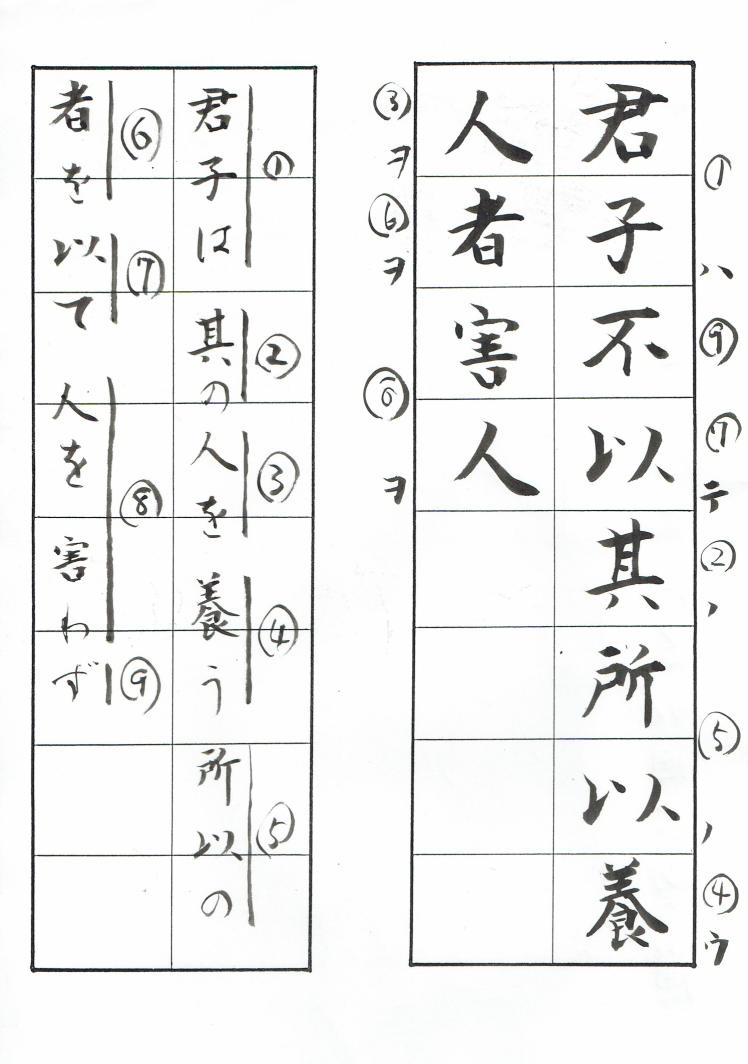 ①ハ⑨⑦テ②ノ⑤ノ④ウ
君子不以其所以養
人者害人
③ヲ⑥ヲ⑧ヲ
①②③④⑤
君子は其の人を養う所以の
⑥⑦⑧⑨
者を以て人を害わず